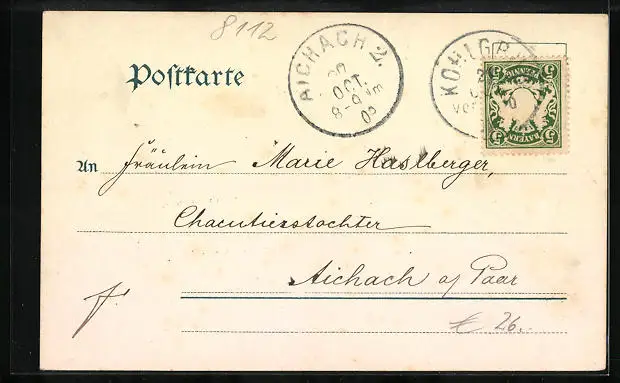 8112
Postkarte
AICHACH 2.
20 OCT.
8-9 Vm
KOHLGR
BAYERN
5 5
An Fräulein Marie Haslberger,
Charcutierstochter
Aichach a/ Paar
f.
€ 26.-